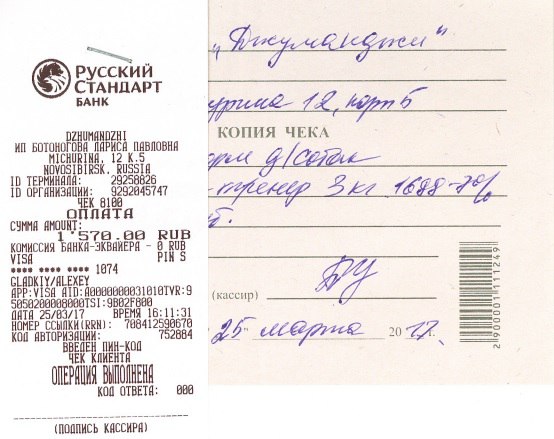 РУССКИЙ
СТАНДАРТ
БАНК
DZHUMANDZHI
ИП БОТОНОГОВА ЛАРИСА ПАВЛОВНА
MICHURINA, 12 К.5
NOVOSIBIRSK, RUSSIA
ID ТЕРМИНАЛА: 29250826
ID ОРГАНИЗАЦИИ: 9292045747
ЧЕК 0100
ОПЛАТА
СУММА AMOUNT:
1'570.00 RUB
КОМИССИЯ БАНКА-ЭКВАЙЕРА - 0 RUB
VISA PIN S
**** **** **** 1074
GLADKIY/ALEXEY
APP:VISA AID:A0000000031010TVR:9
5050200008000TSI:9B02F800
ДАТА 25/03/17 ВРЕМЯ 16:11:31
НОМЕР ССЫЛКИ(RRN): 708412590670
КОД АВТОРИЗАЦИИ: 752084
ВВЕДЕН ПИН-КОД
ЧЕК КЛИЕНТА
ОПЕРАЦИЯ ВЫПОЛНЕНА
КОД ОТВЕТА: 000
(ПОДПИСЬ КАССИРА)
„Джуманджи"
урина 12, корп 5
КОПИЯ ЧЕКА
орм д/собак
тренер 3 кг 1688-7%
б.
(кассир)
"25" марта 2017г.
2900001111249